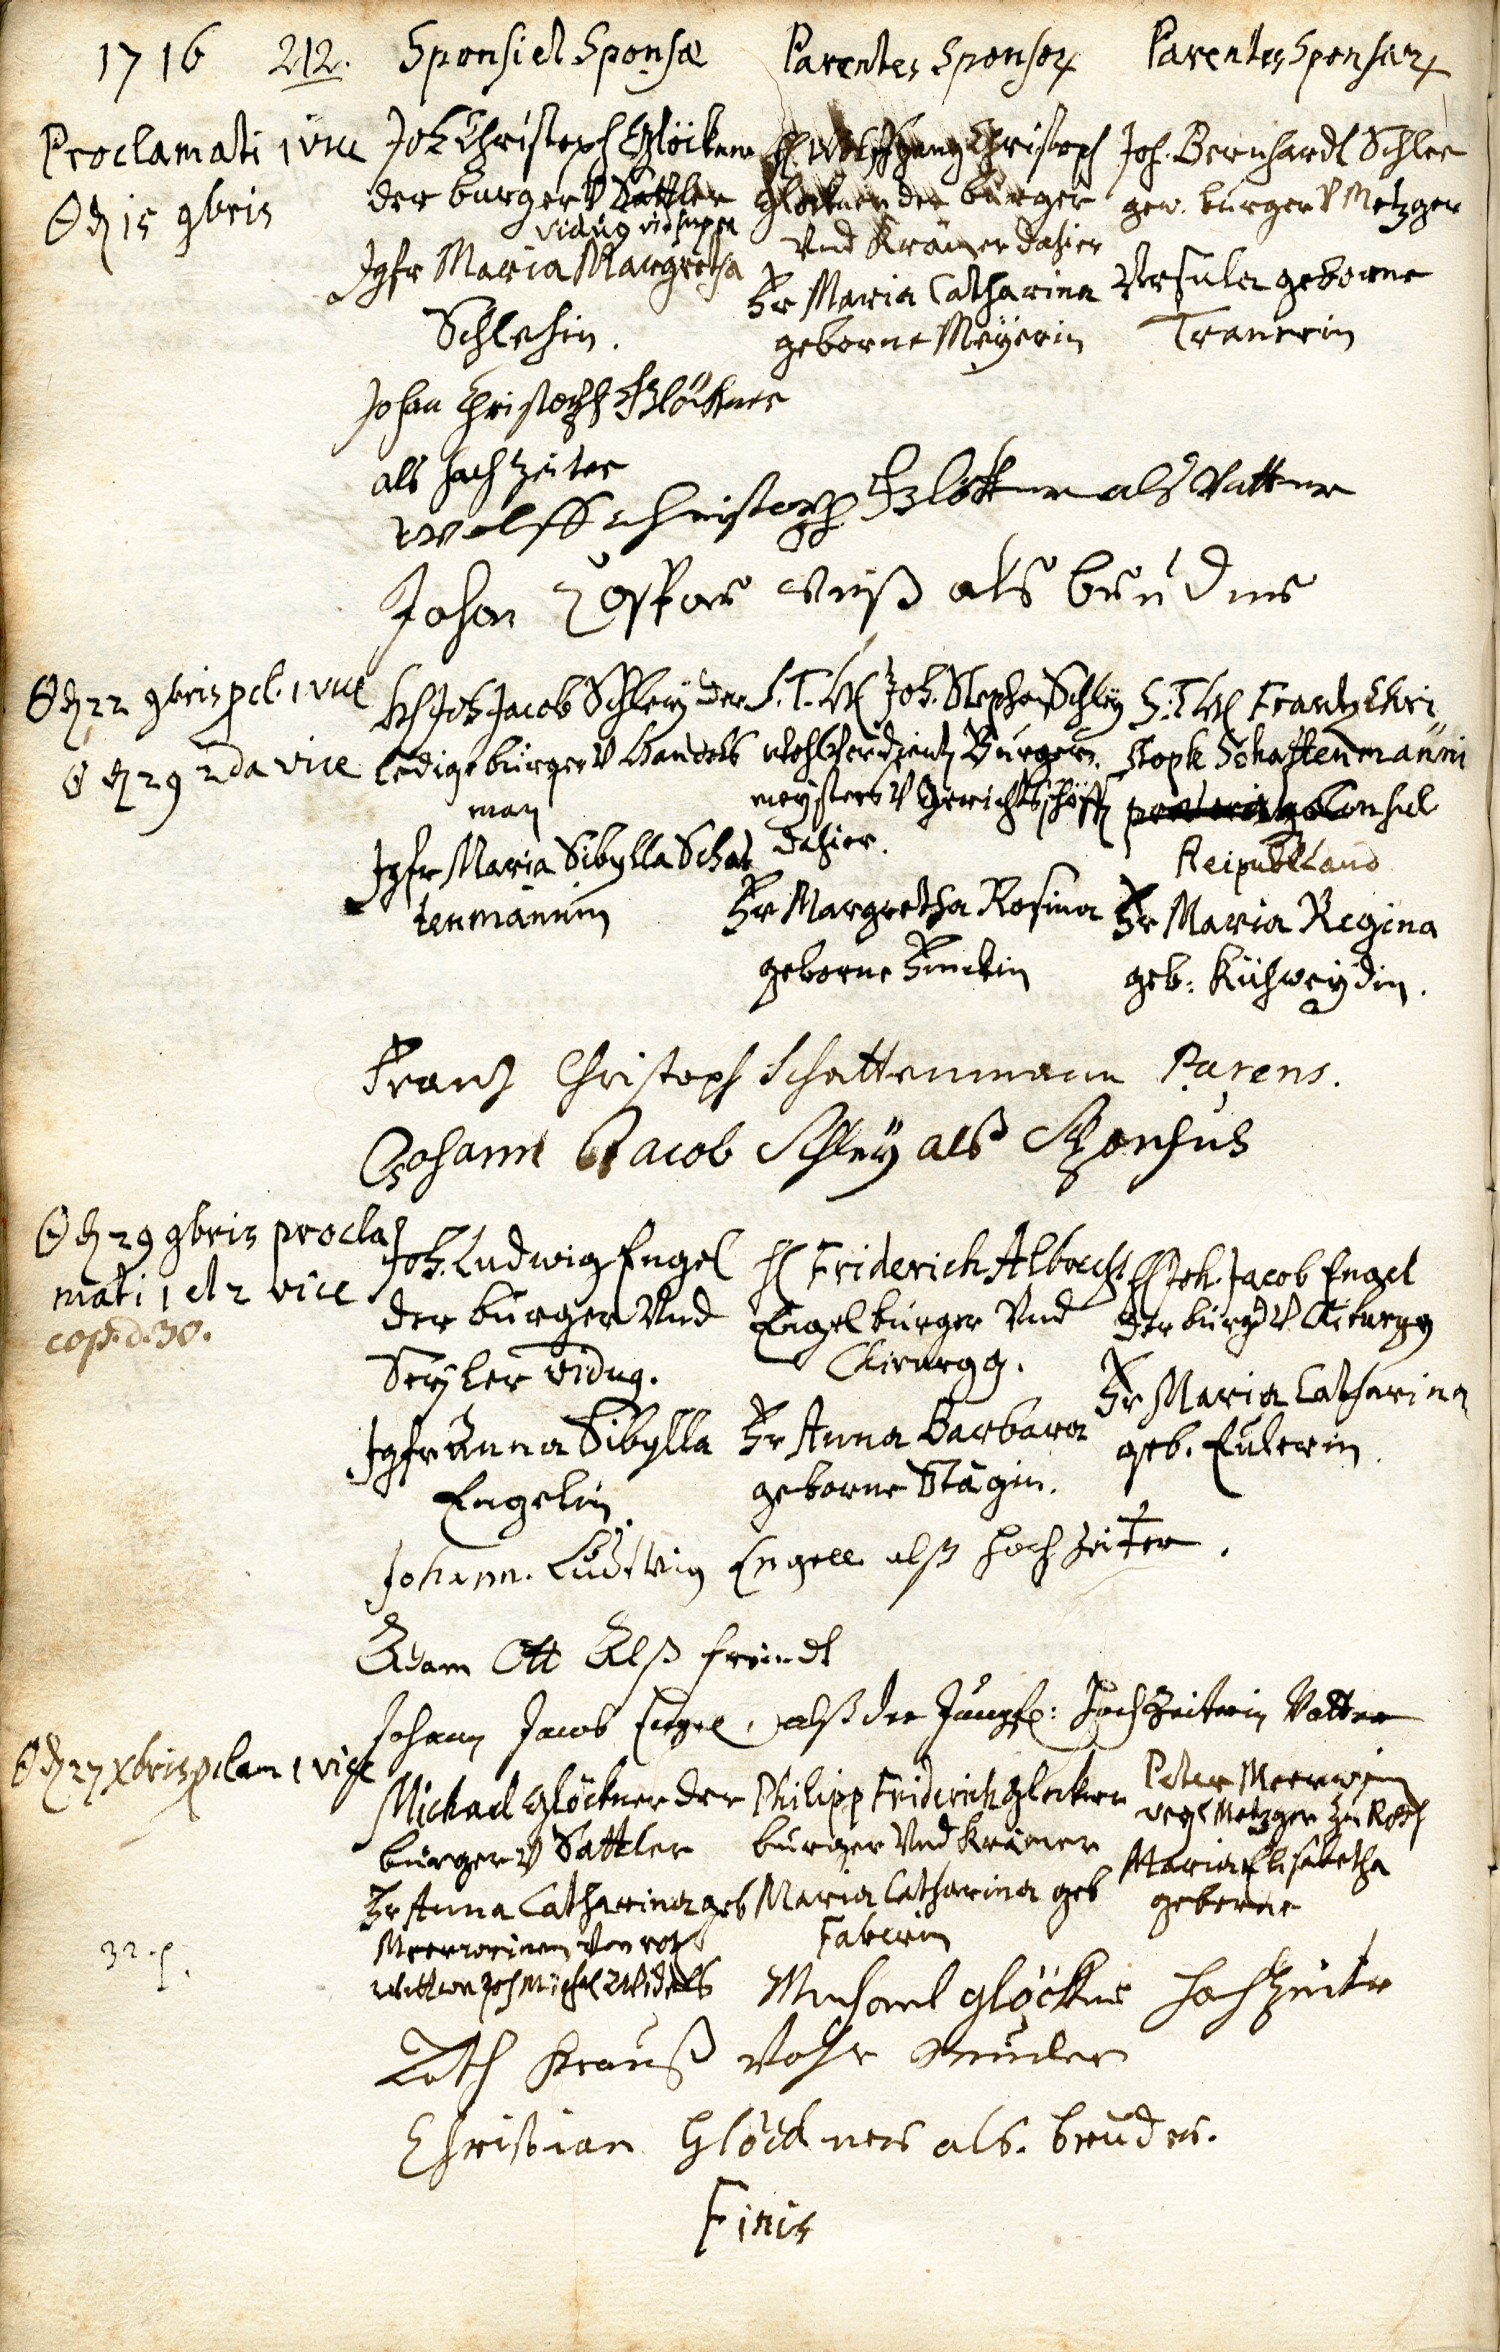 1716 212. Sponsi et Sponsæ Parentes Sponsor Parentes Sponsar
Proclamati 1 vice
15 9bris
Joh Christoph Glöckner
der burger V Sattler
viduus vid supra
Jgfr Maria Margretha
Schlehin.
H. Wolffgang Christoph
Glöckner der burger
Vnd Krämer dahier
Fr Maria Catharina
geborne Meÿerin
Joh. Bernhardt Schlee
gew. burger V Metzger
Vrsula geborne
Tranerin
Johan Christoph Glöckner
als hochzeiter
Wolff christoph Glöckner als Vatter
Johan als bruder
22 9bris pcl. 1 vice
29 2da vice
H Joh Jacob Schleÿ der
ledige bürger V Handels
man
Jgfr Maria Sibylla Schat
tenmännin
S. T. H Joh. Stephan Schleÿ
wohlverdient Burger
meÿsters V Gerichtsschöff
dahier.
Fr Margretha Rosina
geborne
S. T. H Frantz Chri
stoph Schattenmanni
Consul
Reipubl Land
Fr Maria Regina
geb: Kühweÿdin.
Frantz Christoph Schattenmann Parens.
Johann Jacob Schleÿ alß Sponsus
29 9bris procla
mati 1 et 2 vice
cop. d. 30.
Joh. Ludwig Engel
der burger Vnd
Seÿler vidug.
Jgfr Anna Sibylla
Engelin
H Friderich Albrecht
Engel burger Vnd
Chirurgg.
Fr Anna Barbara
geborne Stägin.
H Joh. Jacob Engel
der burg V Chirurgg
Fr Maria Catharina
geb. Eulerin
Johann. Ludwig Engell alß hoch zeiter.
Adam Ott Alß freindt
Johann Jacob Engel, alß der Jungfr: Hochzeiterin Vatter
27 Xbris pclam 1 vice
Michael Glöckner der
burger V Sattler
Fr Anna Catharina geb
Meerweinin von roth
wittwe Joh Michel
Philipp Friderich Glöckner
burger Vnd Krämer
Maria Catharina geb
Faberin
Peter Meerwein
Metzger zu Roth
Maria Elisabetha
geborne
32. p.
Michael Glöckner hochzeiter
Krauß
Christian Glöckner als. bruder.
Finis